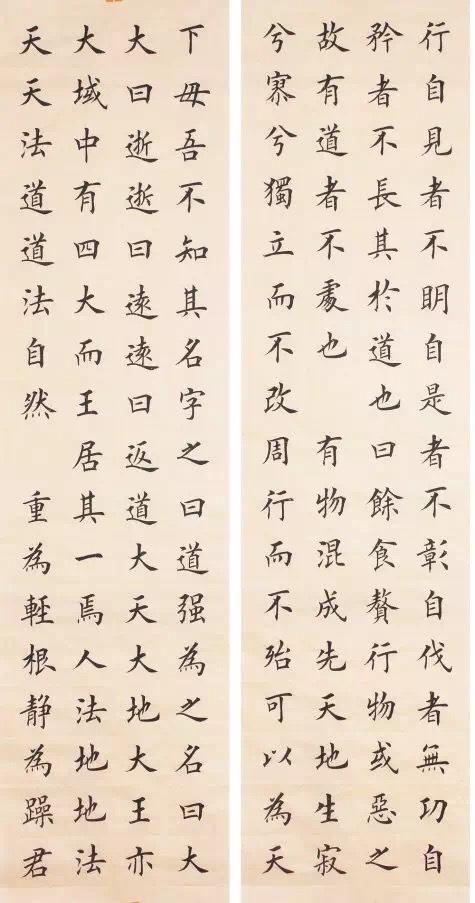 行自見者不眀自是者不彰自伐者無功自
矜者不長其於道也曰餘食贅行物或惡之
故有道者不處也 有物混成先天地生寂
兮寥兮獨立而不改周行而不殆可以為天
下母吾不知其名字之曰道强為之名曰大
大曰逝逝曰遠遠曰返道大天大地大王亦
大域中有四大而王居其一焉人法地地法
天天法道道法自然 重為輕根静為躁君